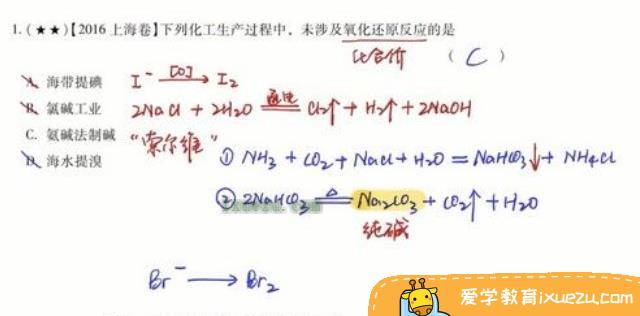 1.(★★)【2016上海卷】下列化工生产过程中，未涉及氧化还原反应的是
化合价 ( C )
A. 海带提碘 I⁻ —[O]→ I₂
B. 氯碱工业 2NaCl + 2H₂O ═通电═ Cl₂↑ + H₂↑ + 2NaOH
C. 氨碱法制碱 "索尔维"
① NH₃ + CO₂ + NaCl + H₂O = NaHCO₃↓ + NH₄Cl
D. 海水提溴
② 2NaHCO₃ ═△═ Na₂CO₃ + CO₂↑ + H₂O
纯碱
Br⁻ ⟶ Br₂
爱学教育ixuezu.com